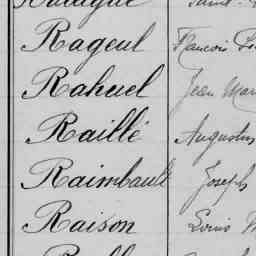 Rageul François
Rahuel Jean Mar
Raillé Augustin
Raimbault Joseph
Raison Louis M